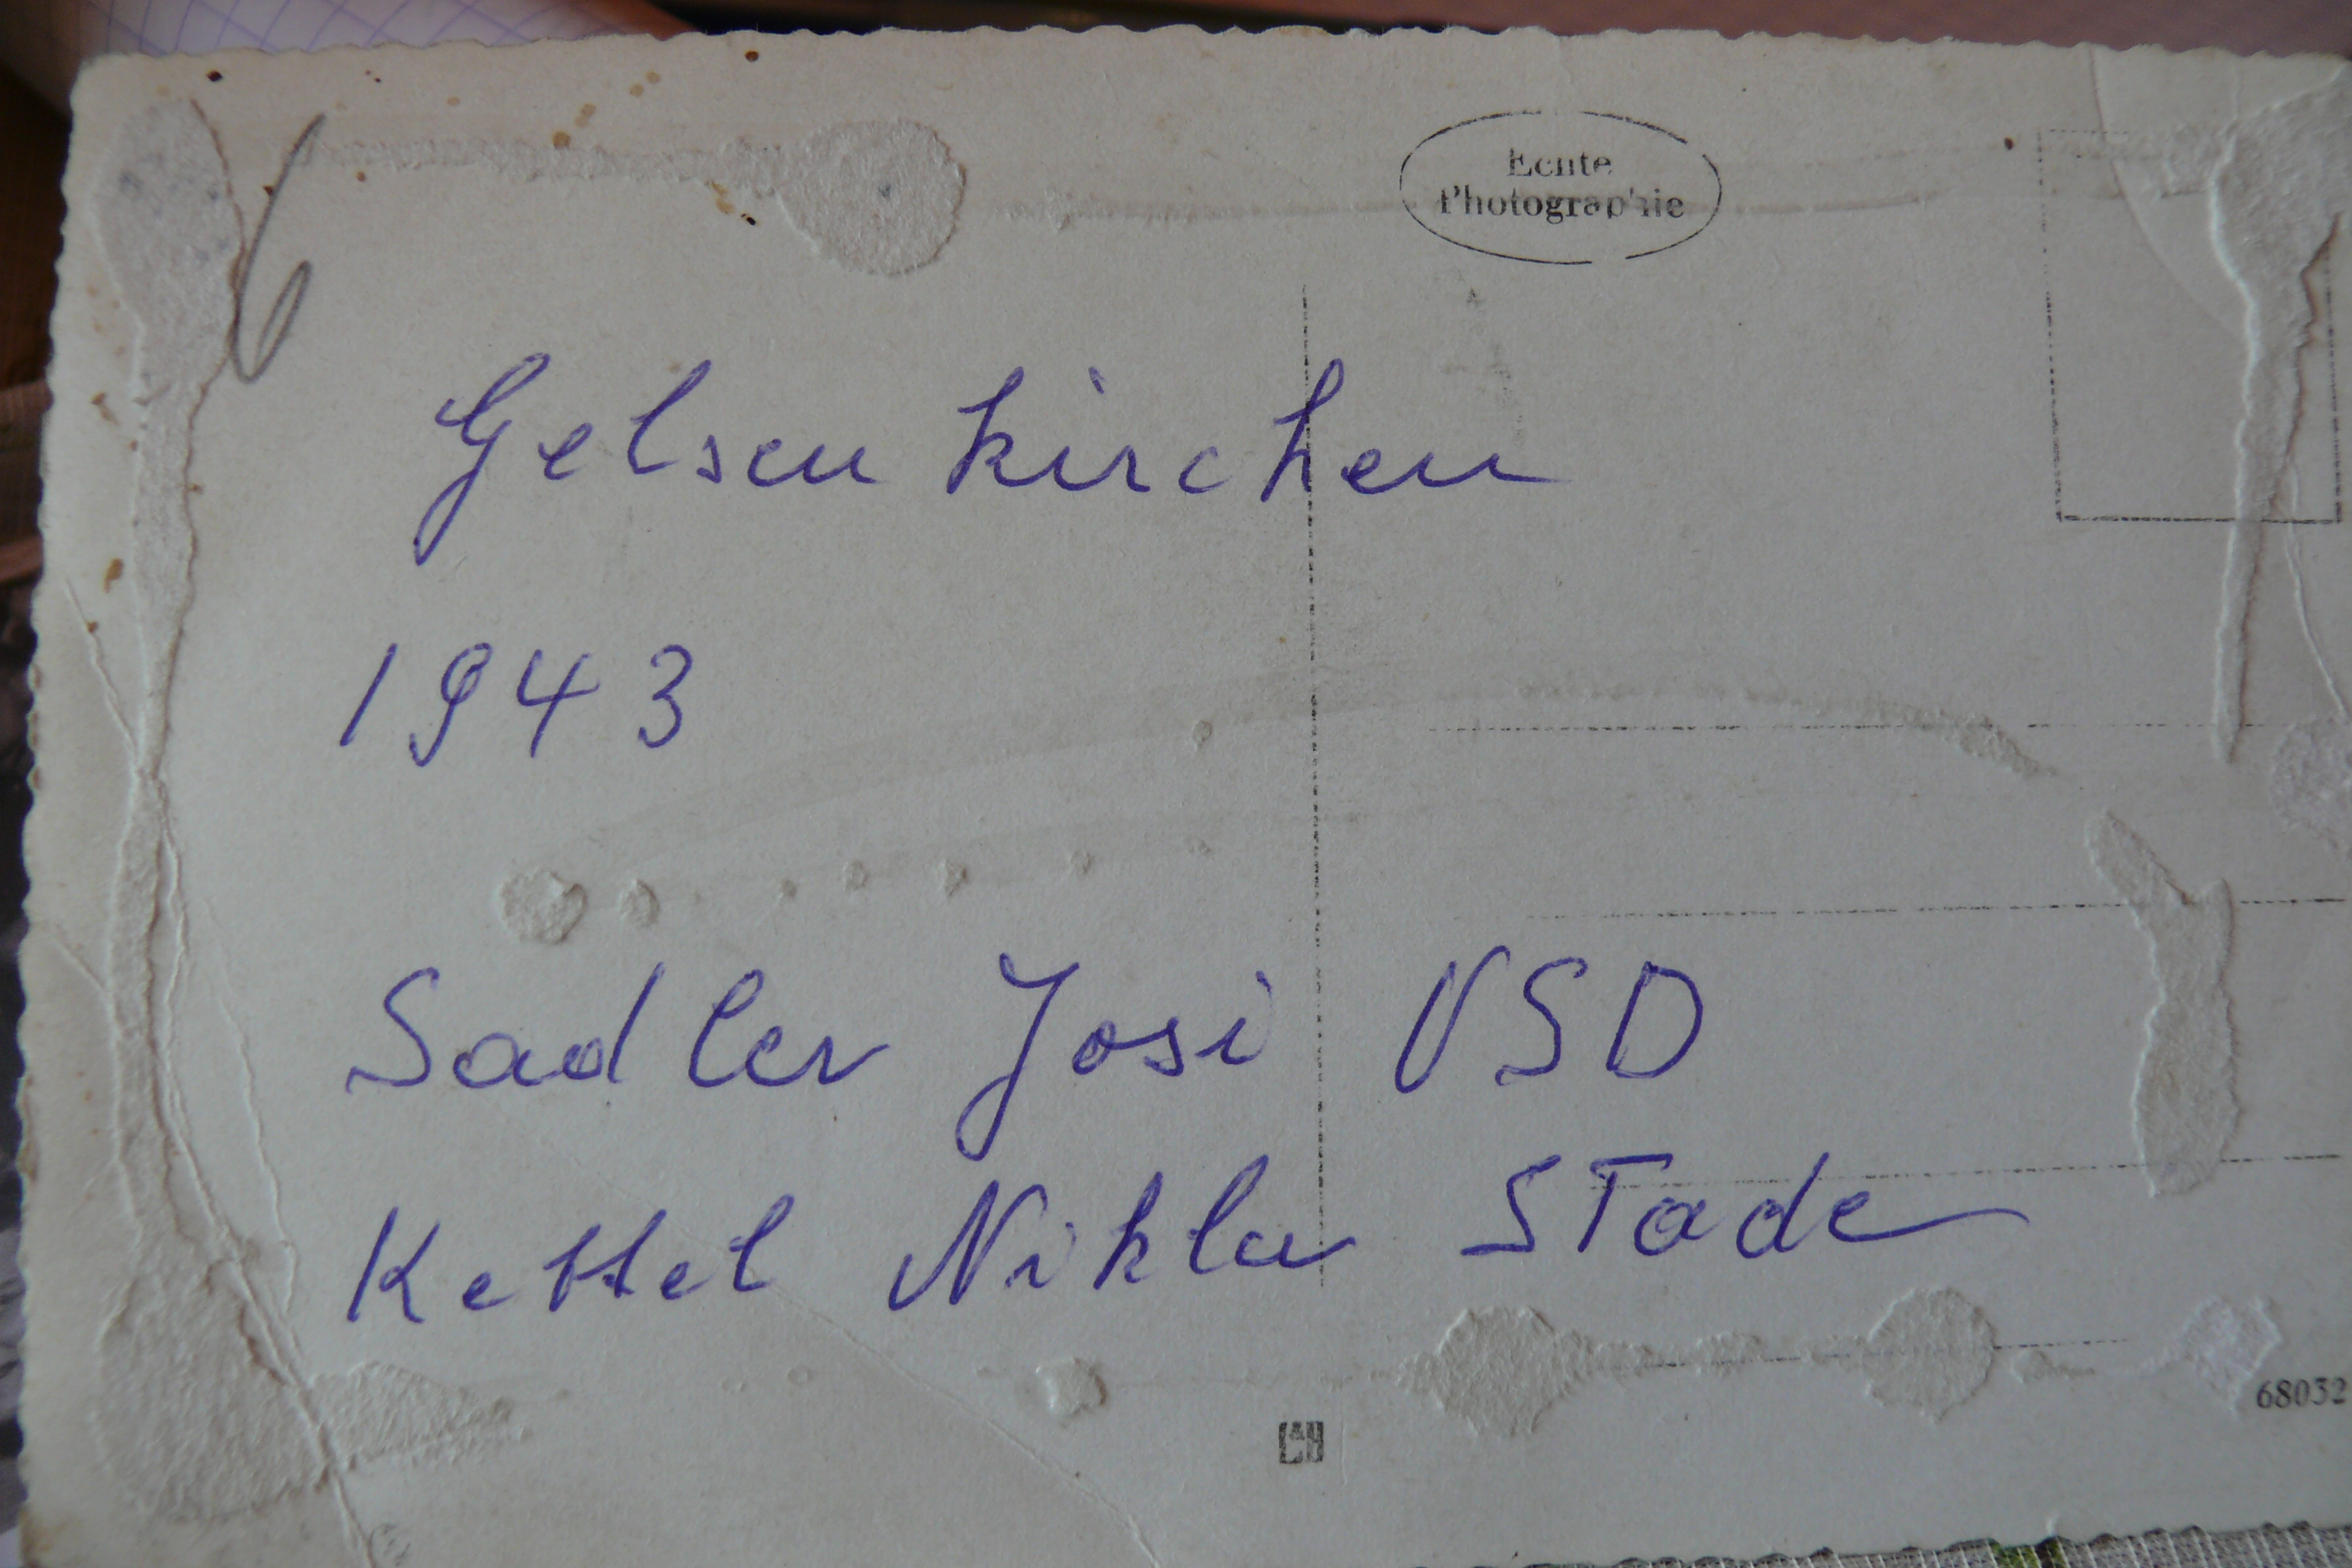 6
Echte
Photographie
Gelsenkirchen
1943
Sadler Josi VSD
Kettel Niklu Stade
68032